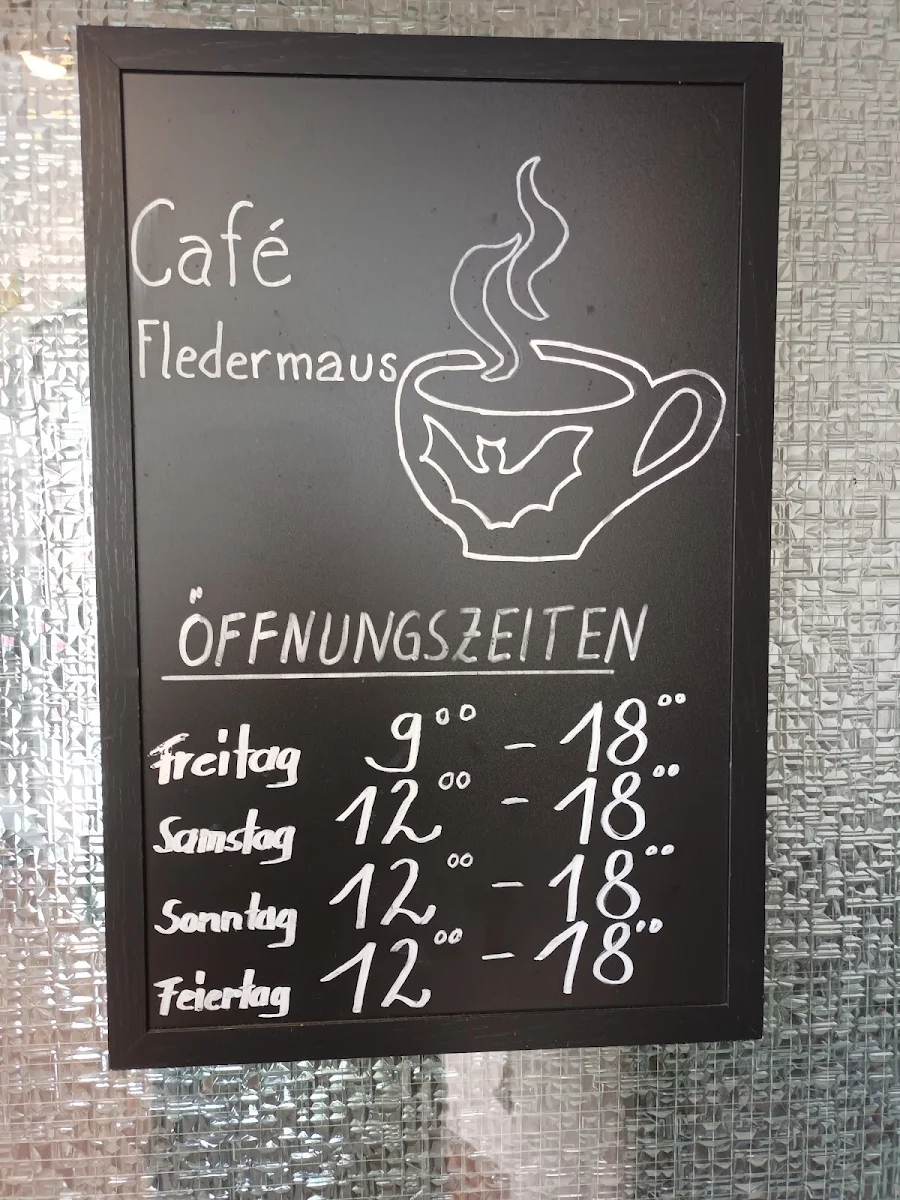 Café
Fledermaus
ÖFFNUNGSZEITEN
Freitag 9⁰⁰ - 18⁰⁰
Samstag 12⁰⁰ - 18⁰⁰
Sonntag 12⁰⁰ - 18⁰⁰
Feiertag 12⁰⁰ - 18⁰⁰